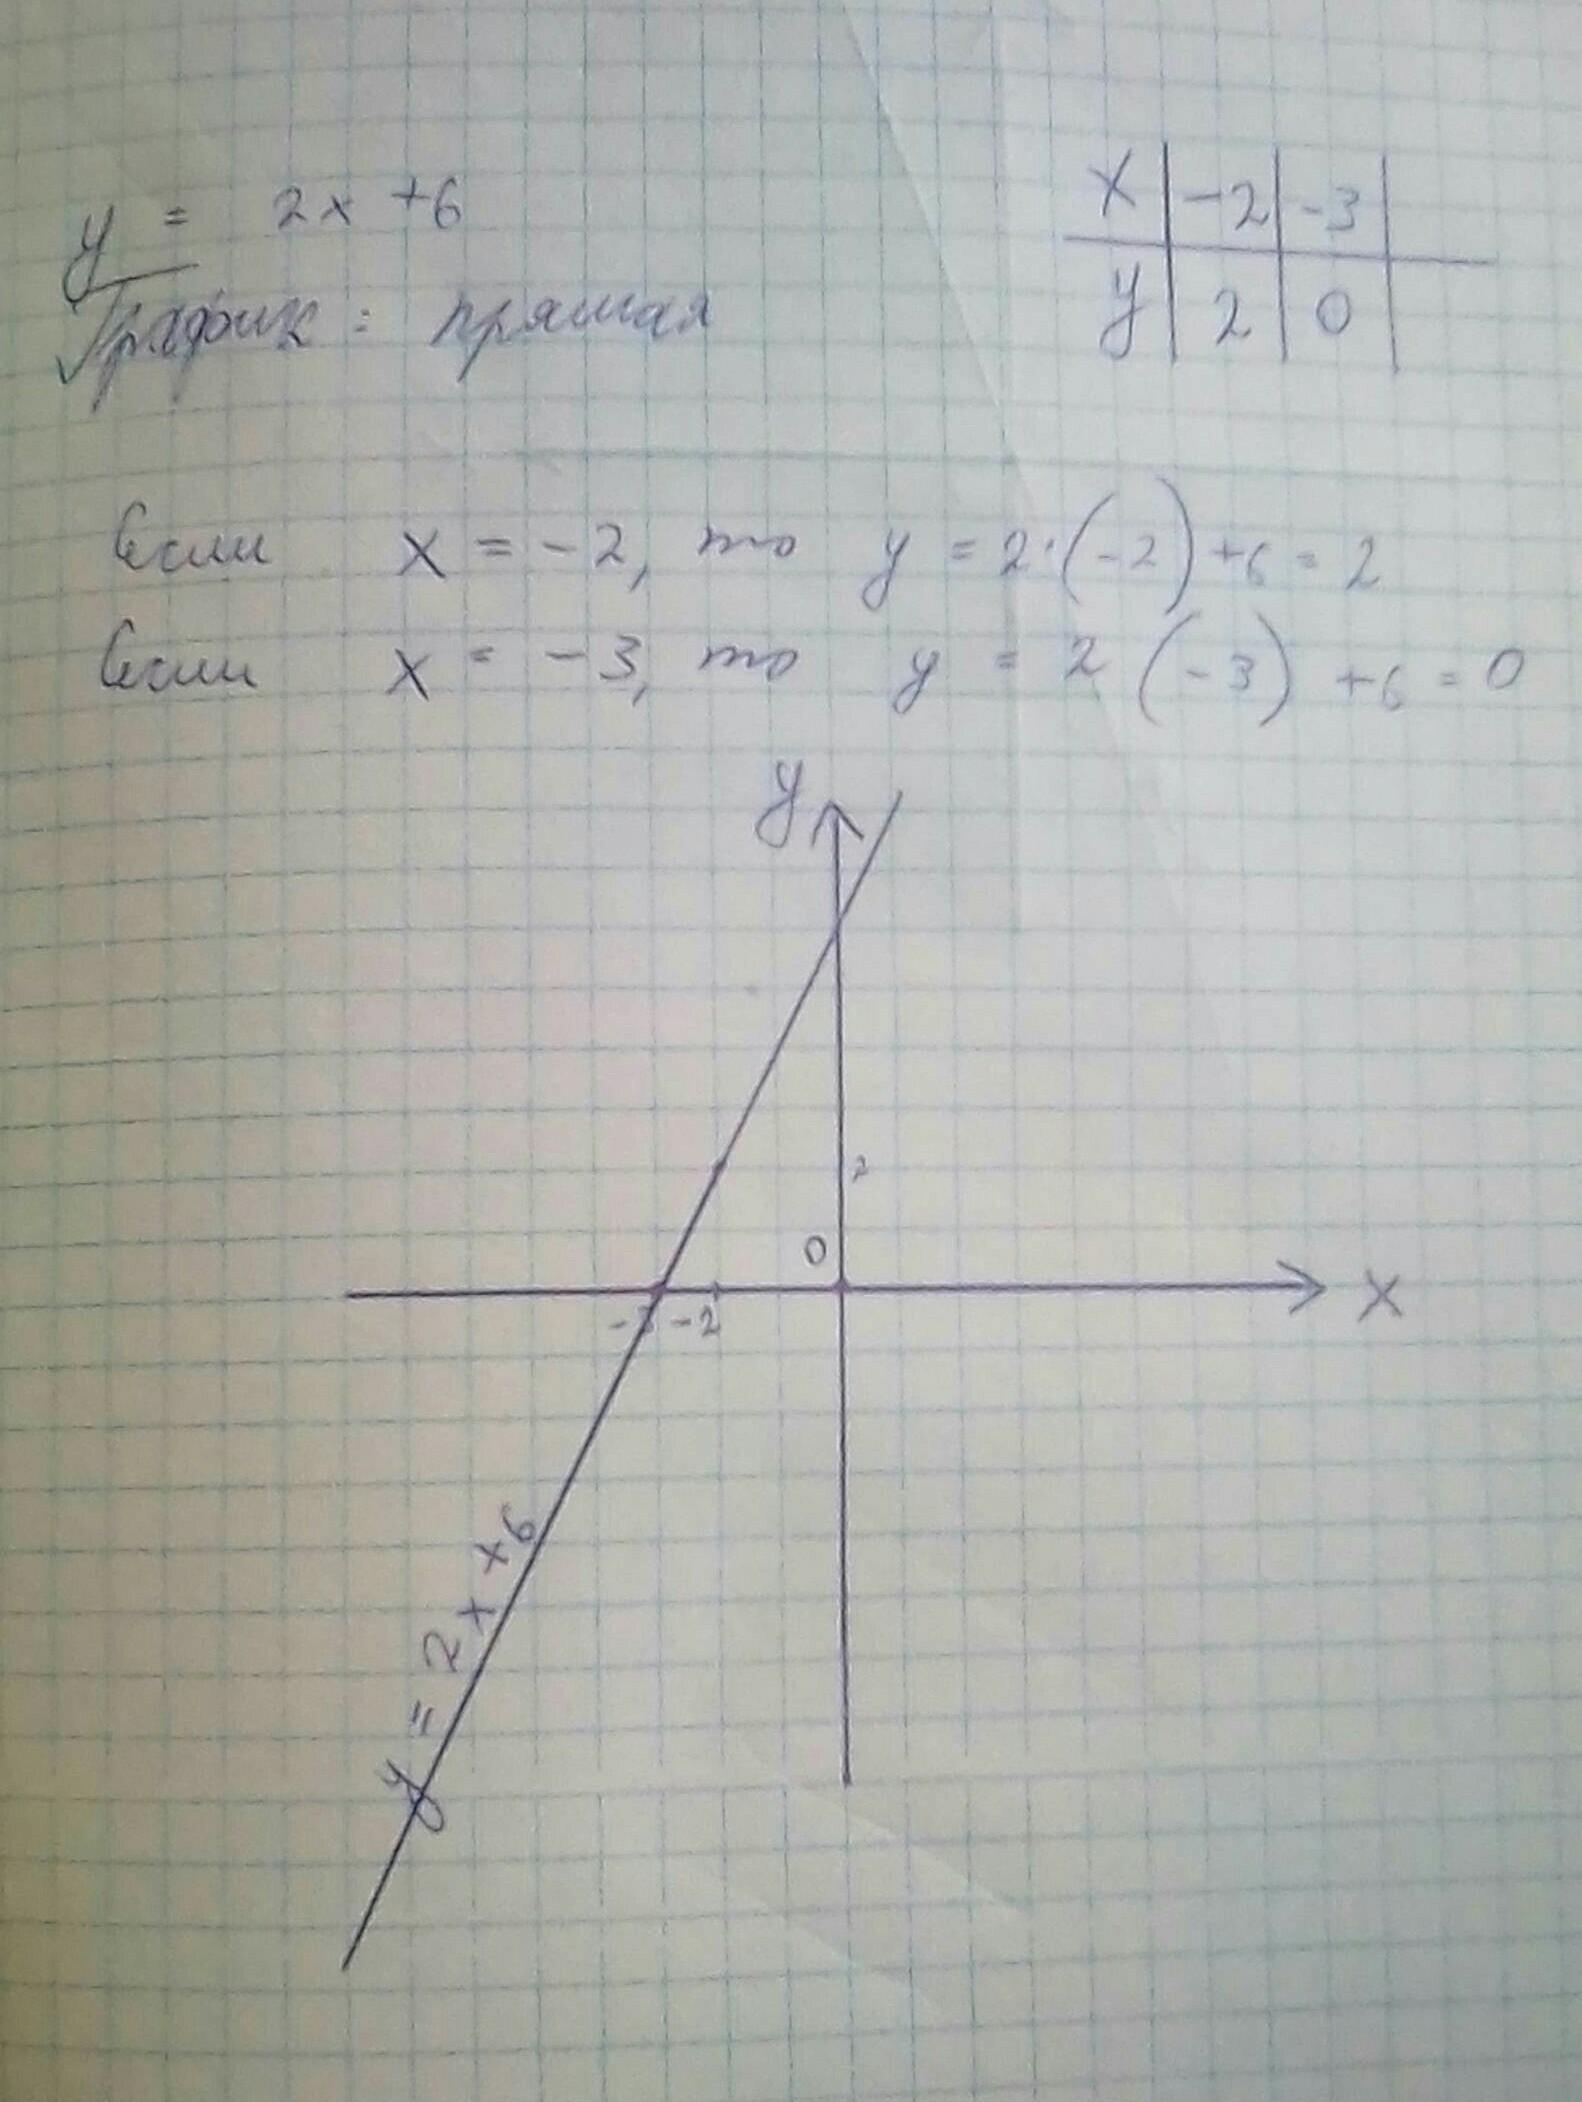 y = 2x +6
График: прямая
x | -2 | -3 |
y | 2 | 0 |
Если x = -2, то y = 2·(-2)+6 = 2
Если x = -3, то y = 2 (-3) +6 = 0
y
2
0
x
-3 -2
y = 2x+6